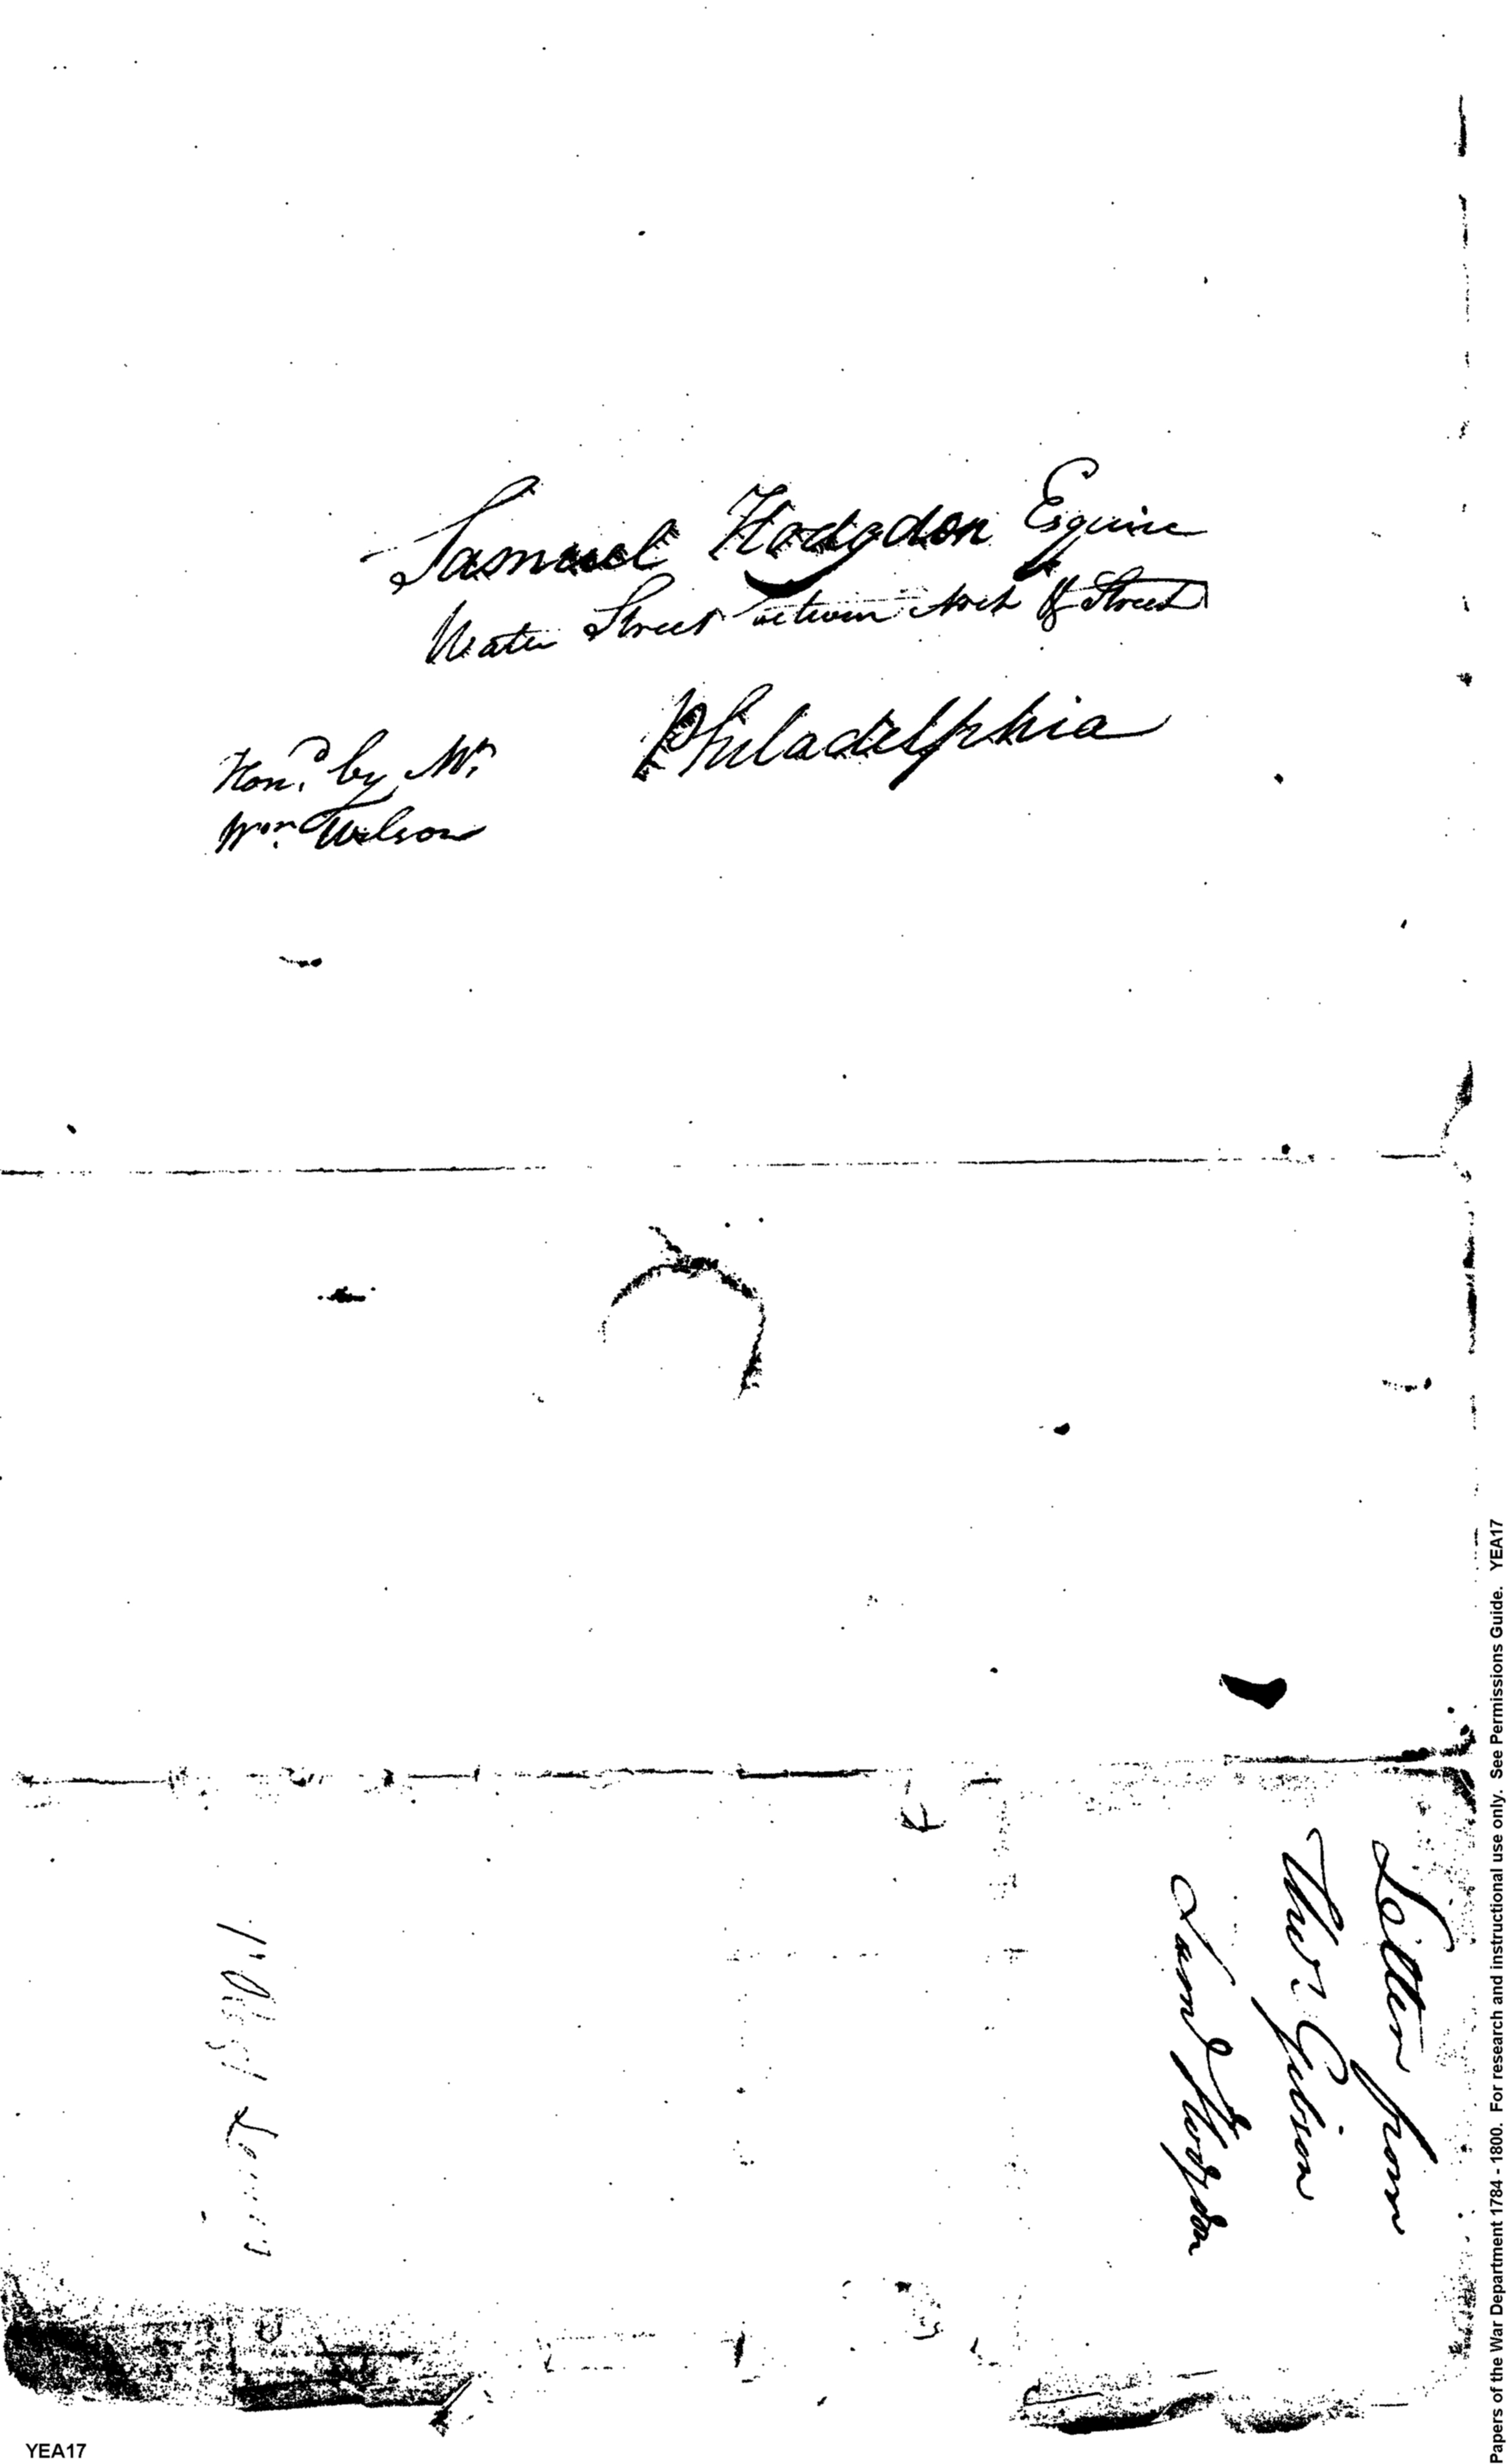 Samuel Hodgdon Esquire
Water Street between Arch & Street
Philadelphia
Hon.d by Mr.
Wm. Wilson
Letter from
Thos. Gibson
Saml Hodgdon
Papers of the War Department 1784 - 1800. For research and instructional use only. See Permissions Guide. YEA17
YEA17